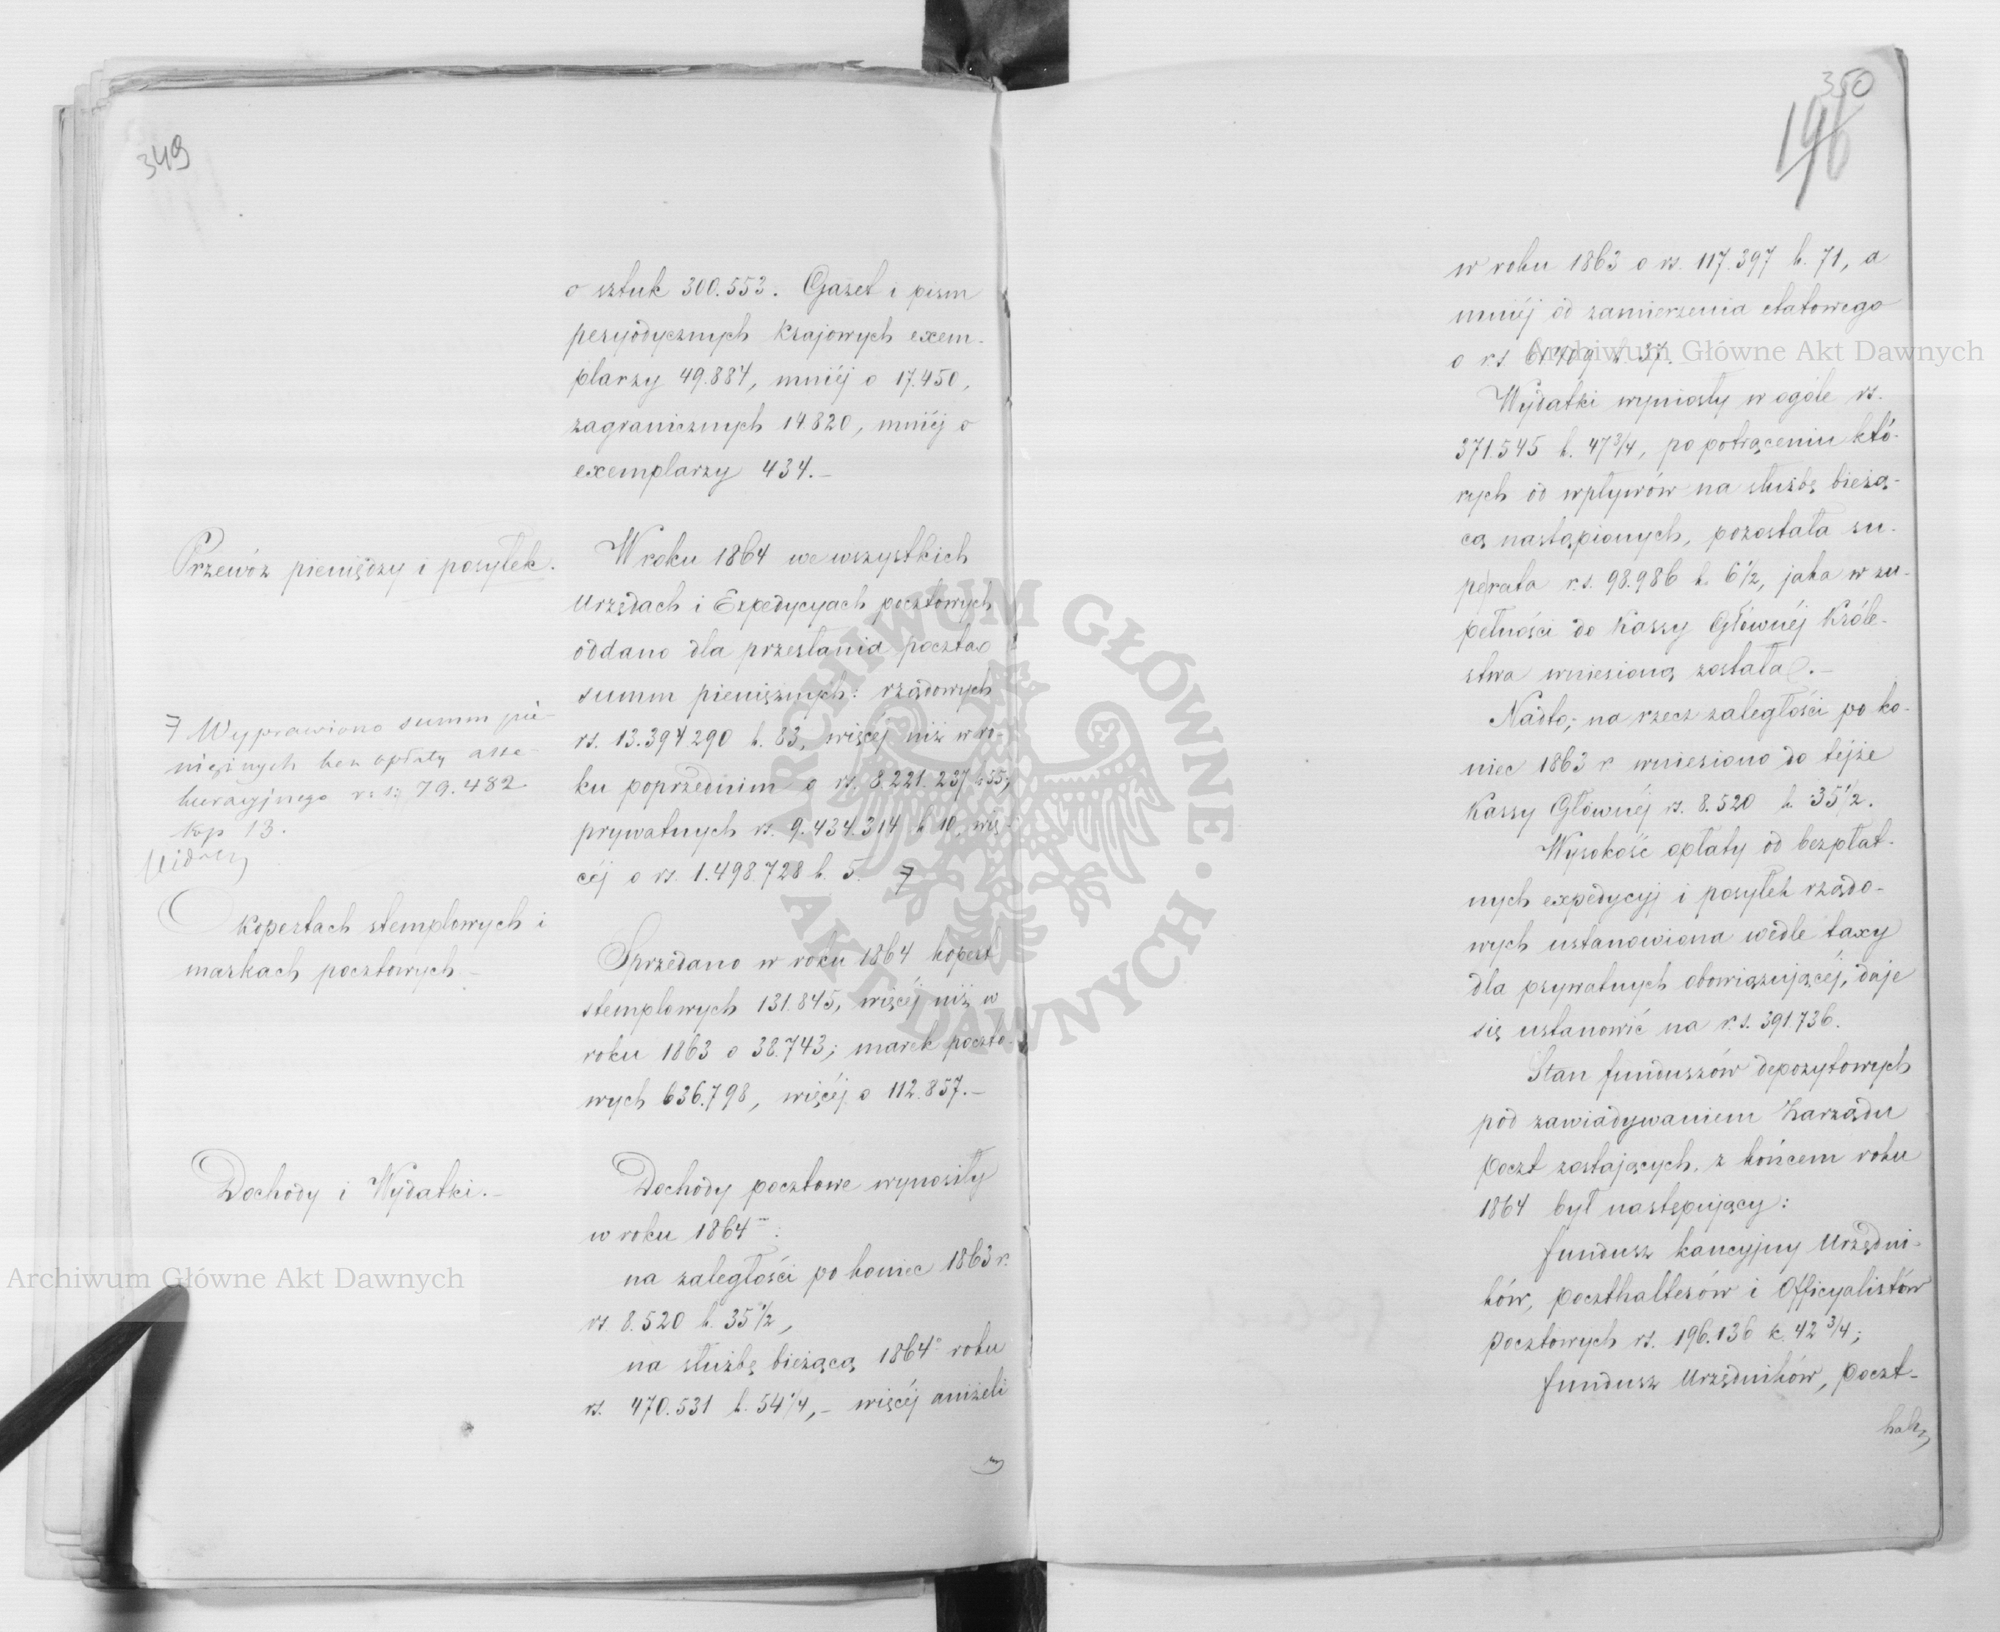 349
o sztuk 300.553. Gazet i pism
peryodycznych krajowych exem-
plarzy 49.884, mniéj o 17.450,
zagranicznych 14.820, mniéj o
exemplarzy 434.–
Przewóz pieniędzy i posyłek.
W roku 1864 we wszystkich
Urzędach i Expedycyach pocztowych
oddano dla przesłania pocztą
summ pieniężnych: rządowych
rs. 13.394.290 k. 83, więcéj niż w ro-
ku poprzednim o rs. 8.221.237 k 55,
prywatnych rs. 9.434.314 k 10, wię-
céj o rs. 1.498.728 k. 5. 7
7 Wyprawiono summ pie-
niężnych bez opłaty asse-
kuracyjnego rs. 79.482
kop 13.
O kopertach stemplowych i
markach pocztowych.–
Sprzedano w roku 1864 kopert
stemplowych 131.845, więcéj niż w
roku 1863 o 38.743; marek poczto-
wych 636.798, więcéj o 112.857.–
Dochody i Wydatki.–
Dochody pocztowe wynosiły
w roku 1864:
na zaległości po koniec 1863 r.
rs. 8.520 k. 35 1/2,
na służbę bieżącą 1864 roku
rs. 470.531 k. 54 1/4,– więcéj aniżeli
350
196
w roku 1863 o rs. 117.397 k. 71, a
mniéj od zamierzenia etatowego
o rs.
Wydatki wyniosły w ogóle rs.
371.545 k. 47 3/4, po potrąceniu któ-
rych od wpływów na służbę bieżą-
cą nastąpionych, pozostała su-
perata rs. 98.986 k. 6 1/2, jaka w zu-
pełności do Kassy Głównéj Króle-
stwa wniesioną została.–
Nadto, na rzecz zaległości po ko-
niec 1863 r. wniesiono do téjże
Kassy Głównéj rs. 8.520 k. 35 1/2.
Wysokość opłaty od bezpłat-
nych expedycyj i posyłek rządo-
wych ustanowiona wedle taxy
dla prywatnych obowiązującéj, daje
się ustanowić na rs. 391736.
Stan funduszów depozytowych
pod zawiadywaniem Zarządu
Poczt zostających, z końcem roku
1864 był następujący:
fundusz kaucyjny Urzędni-
ków, Poczthalterów i Officyalistów
pocztowych rs. 196.136 k. 42 3/4;
fundusz Urzędników, Poczt-
hal
Archiwum Główne Akt Dawnych
Archiwum Główne Akt Dawnych
ARCHIWUM GŁÓWNE AKT DAWNYCH